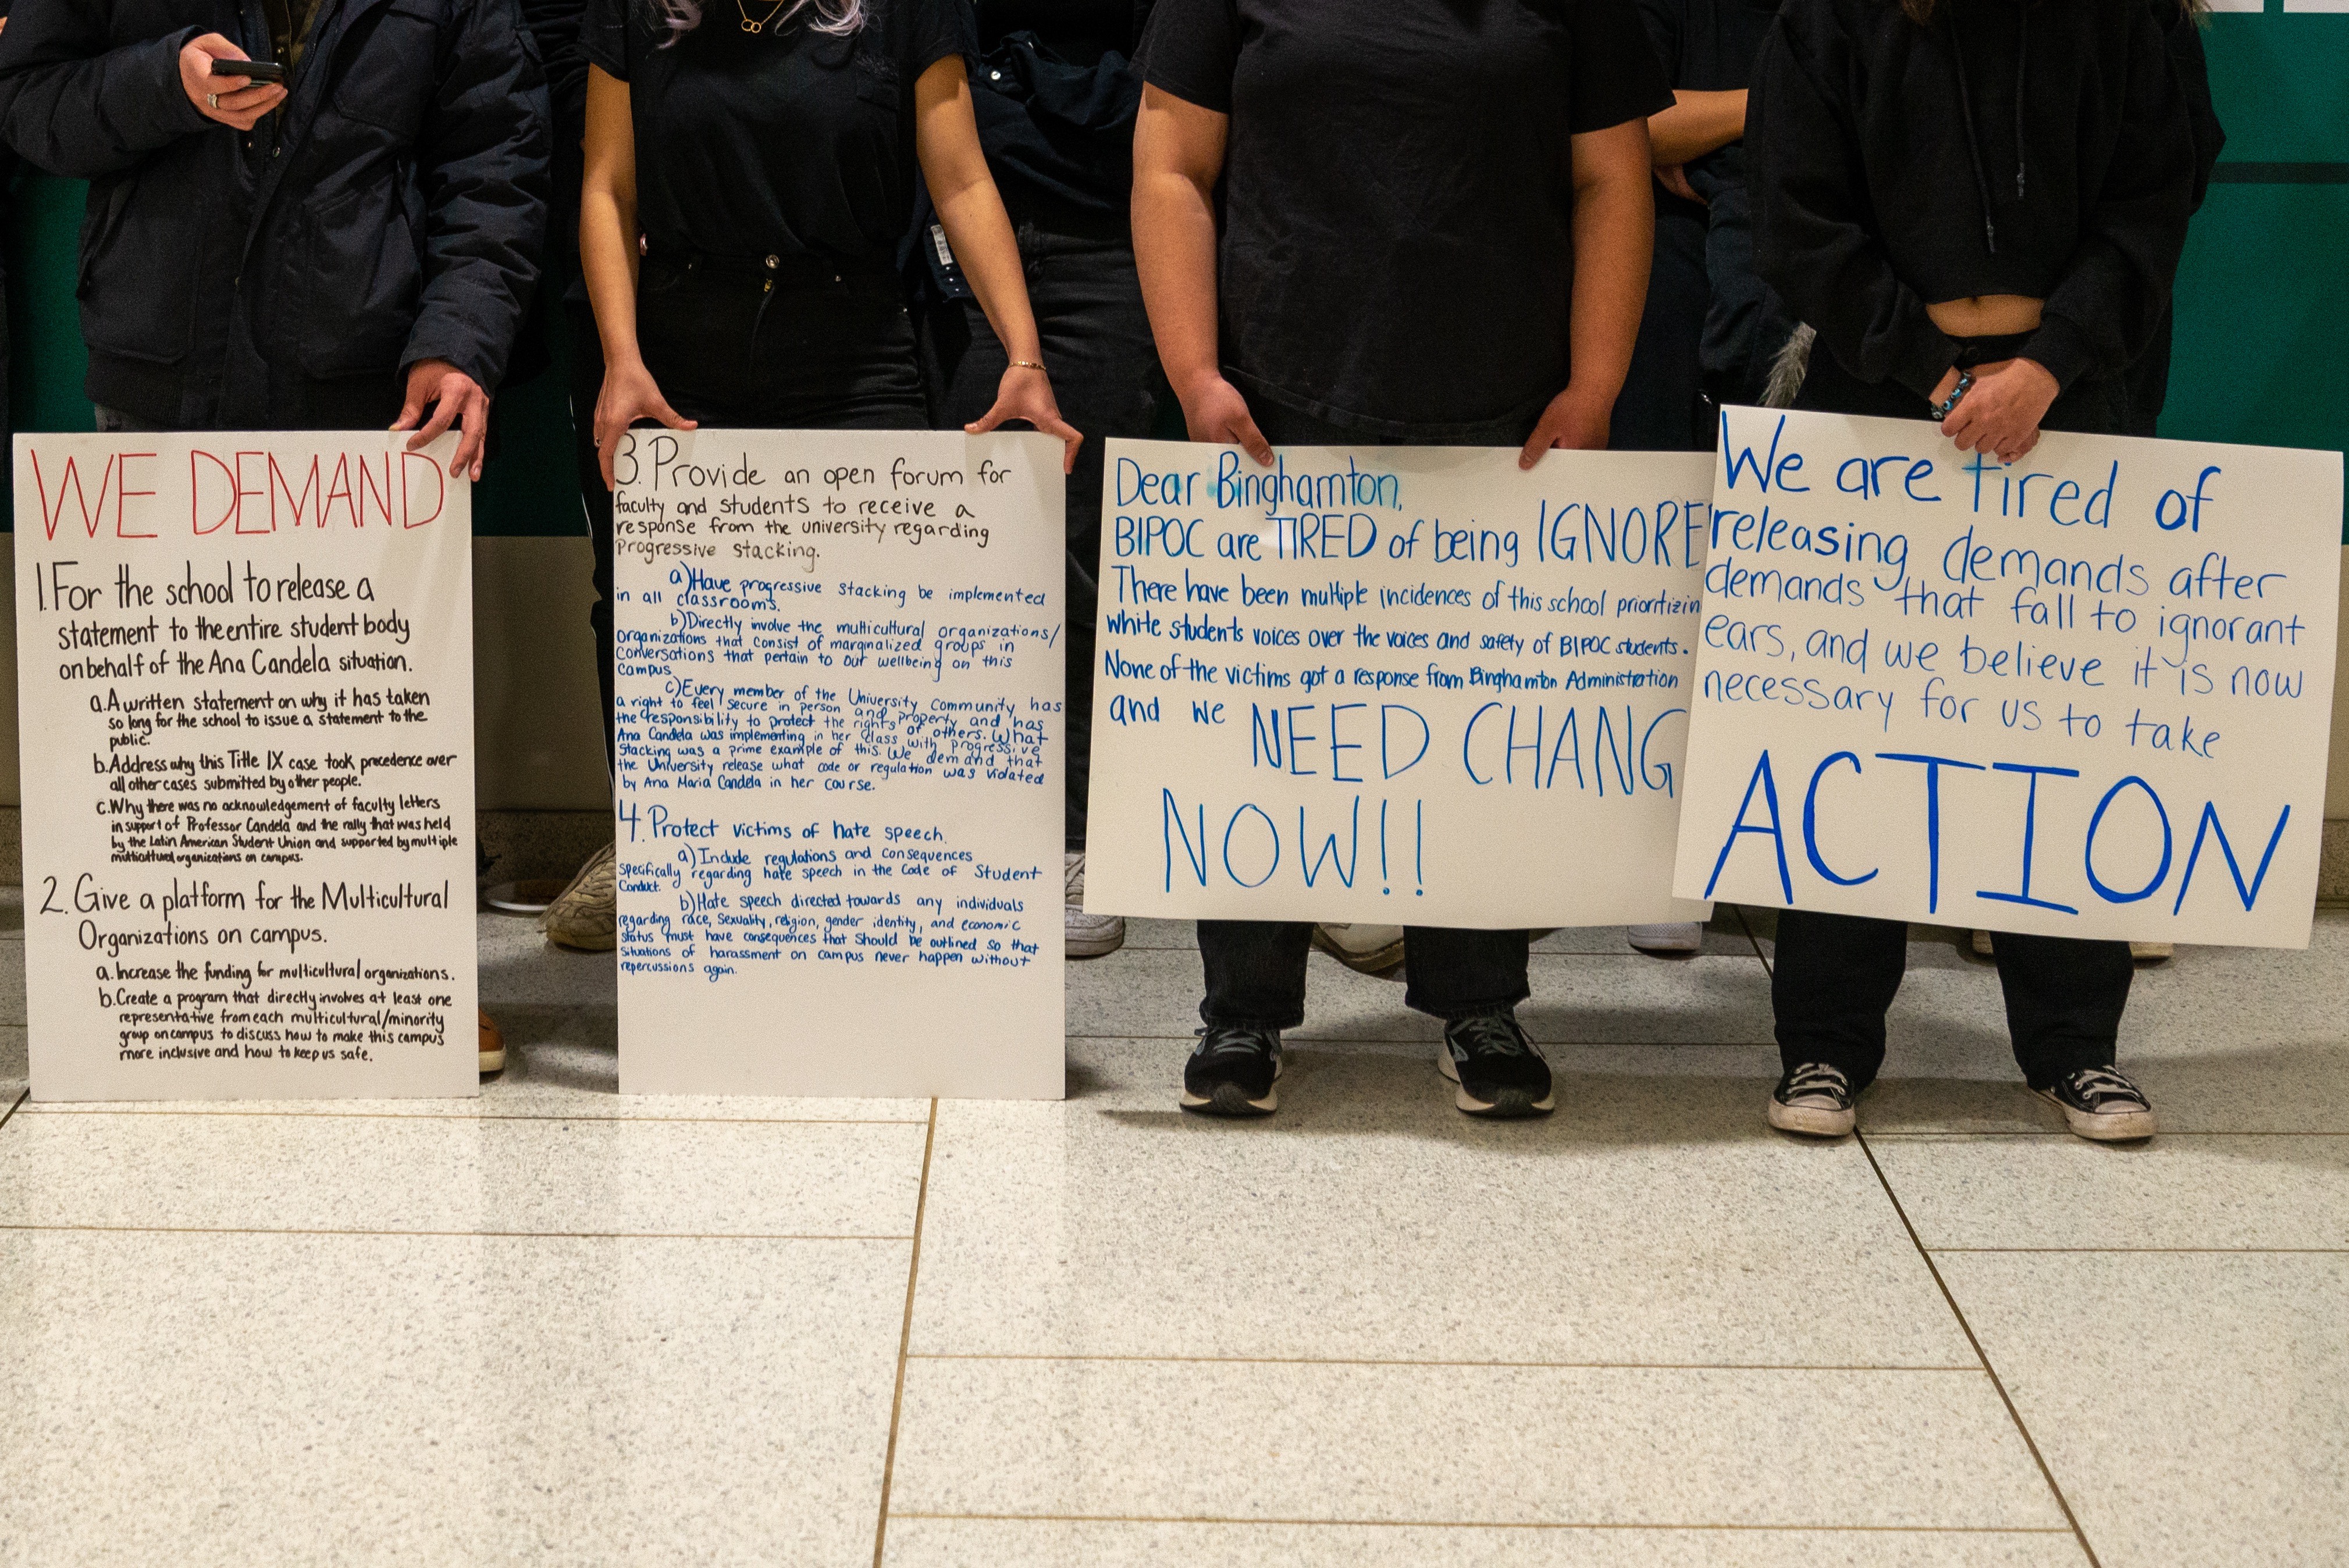 WE DEMAND
1. For the school to release a
statement to the entire student body
on behalf of the Ana Candela situation.
a. A written statement on why it has taken
so long for the school to issue a statement to the
public.
b. Address why this Title IX case took precedence over
all other cases submitted by other people.
c. Why there was no acknowledgement of faculty letters
in support of Professor Candela and the rally that was held
by the Latin American Student Union and supported by multiple
multicultural organizations on campus.
2. Give a platform for the Multicultural
Organizations on campus.
a. Increase the funding for multicultural organizations.
b. Create a program that directly involves at least one
representative from each multicultural/minority
group on campus to discuss how to make this campus
more inclusive and how to keep us safe.
3. Provide an open forum for
faculty and students to receive a
response from the university regarding
Progressive stacking.
a) Have progressive stacking be implemented
in all classrooms.
b) Directly involve the multicultural organizations/
organizations that consist of marginalized groups in
conversations that pertain to our wellbeing on this
campus.
c) Every member of the University community has
a right to feel secure in person and property and has
the responsibility to protect the rights of others. What
Ana Candela was implementing in her class with progressive
stacking was a prime example of this. We demand that
the University release what code or regulation was violated
by Ana Maria Candela in her course.
4. Protect victims of hate speech.
a) Include regulations and consequences
specifically regarding hate speech in the Code of Student
Conduct.
b) Hate speech directed towards any individuals
regarding race, sexuality, religion, gender identity, and economic
status must have consequences that should be outlined so that
situations of harassment on campus never happen without
repercussions again.
Dear Binghamton,
BIPOC are TIRED of being IGNORE
There have been multiple incidences of this school prioritizin
white students voices over the voices and safety of BIPOC students.
None of the victims got a response from Binghamton Administration
and we NEED CHANG
NOW!!
We are tired of
releasing demands after
demands that fall to ignorant
ears, and we believe it is now
necessary for us to take
ACTION